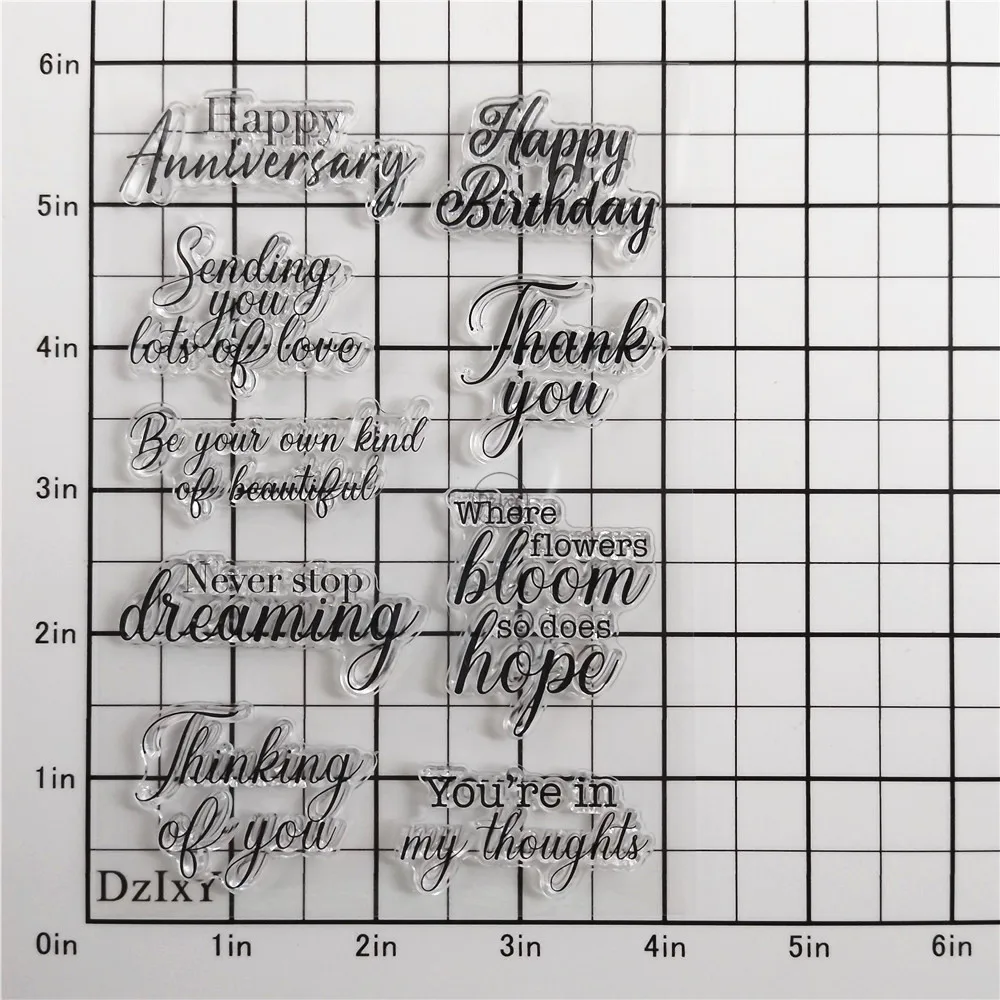 6in
Happy
Anniversary
Happy
Birthday
5in
Sending
you
lots of love
Thank
you
4in
Be your own kind
of beautiful
3in
Where
flowers
bloom
so does
hope
Never stop
dreaming
2in
Thinking
of you
1in
You're in
my thoughts
DzIxY
0in
1in
2in
3in
4in
5in
6in